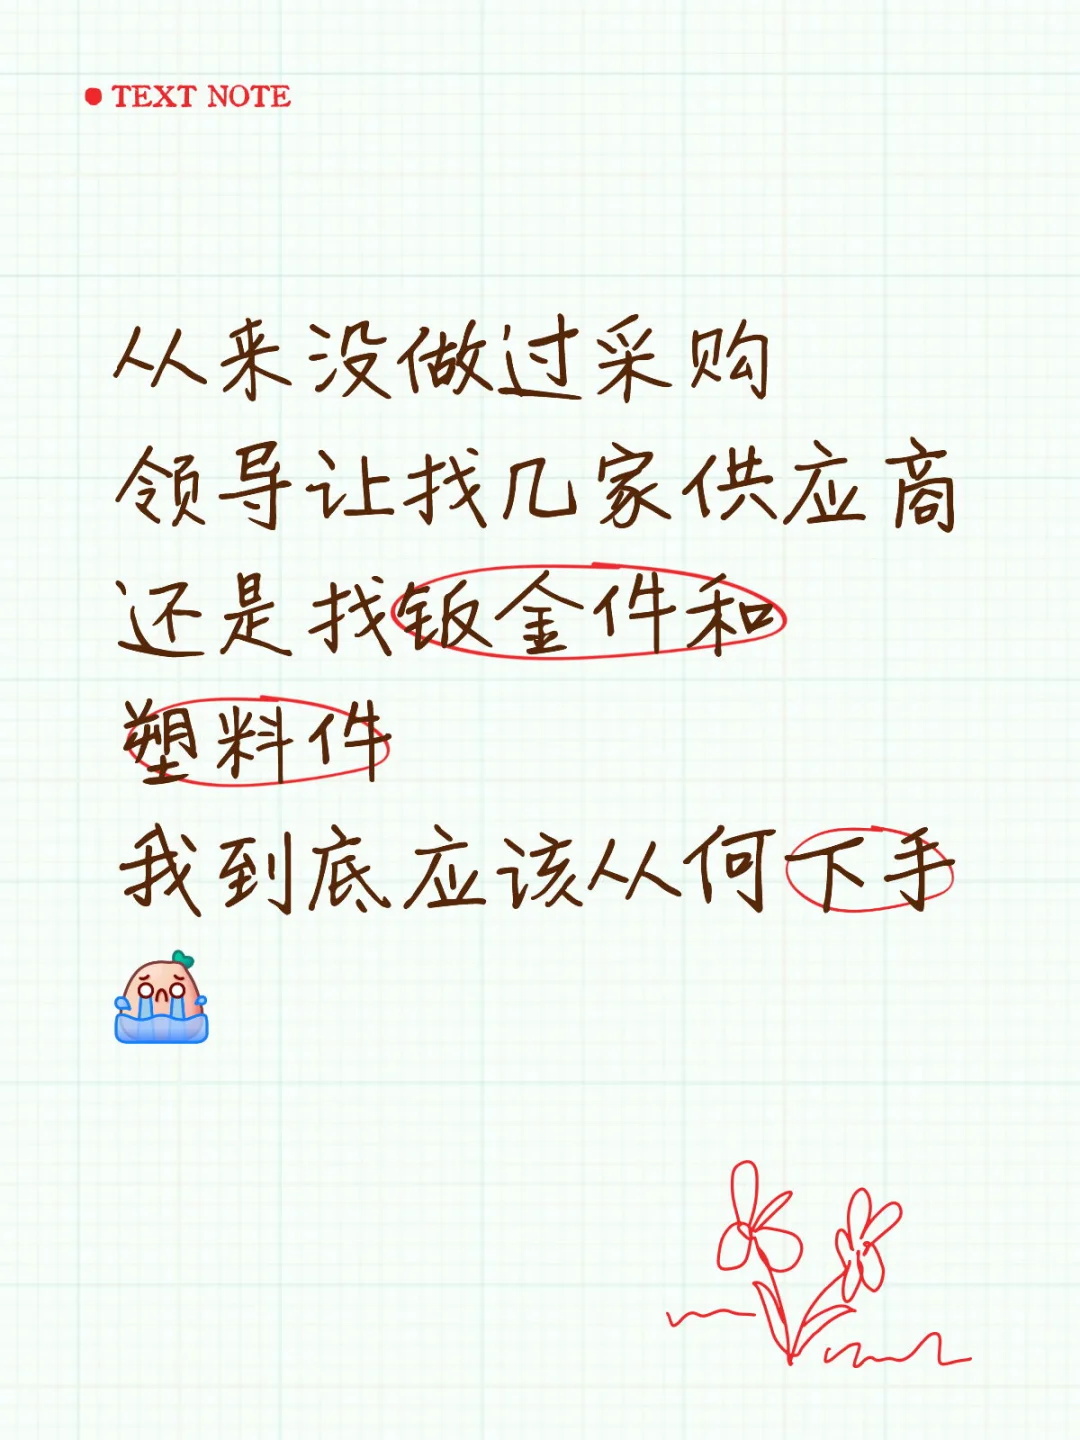 TEXT NOTE
从来没做过采购
领导让找几家供应商
还是找钣金件和
塑料件
我到底应该从何下手